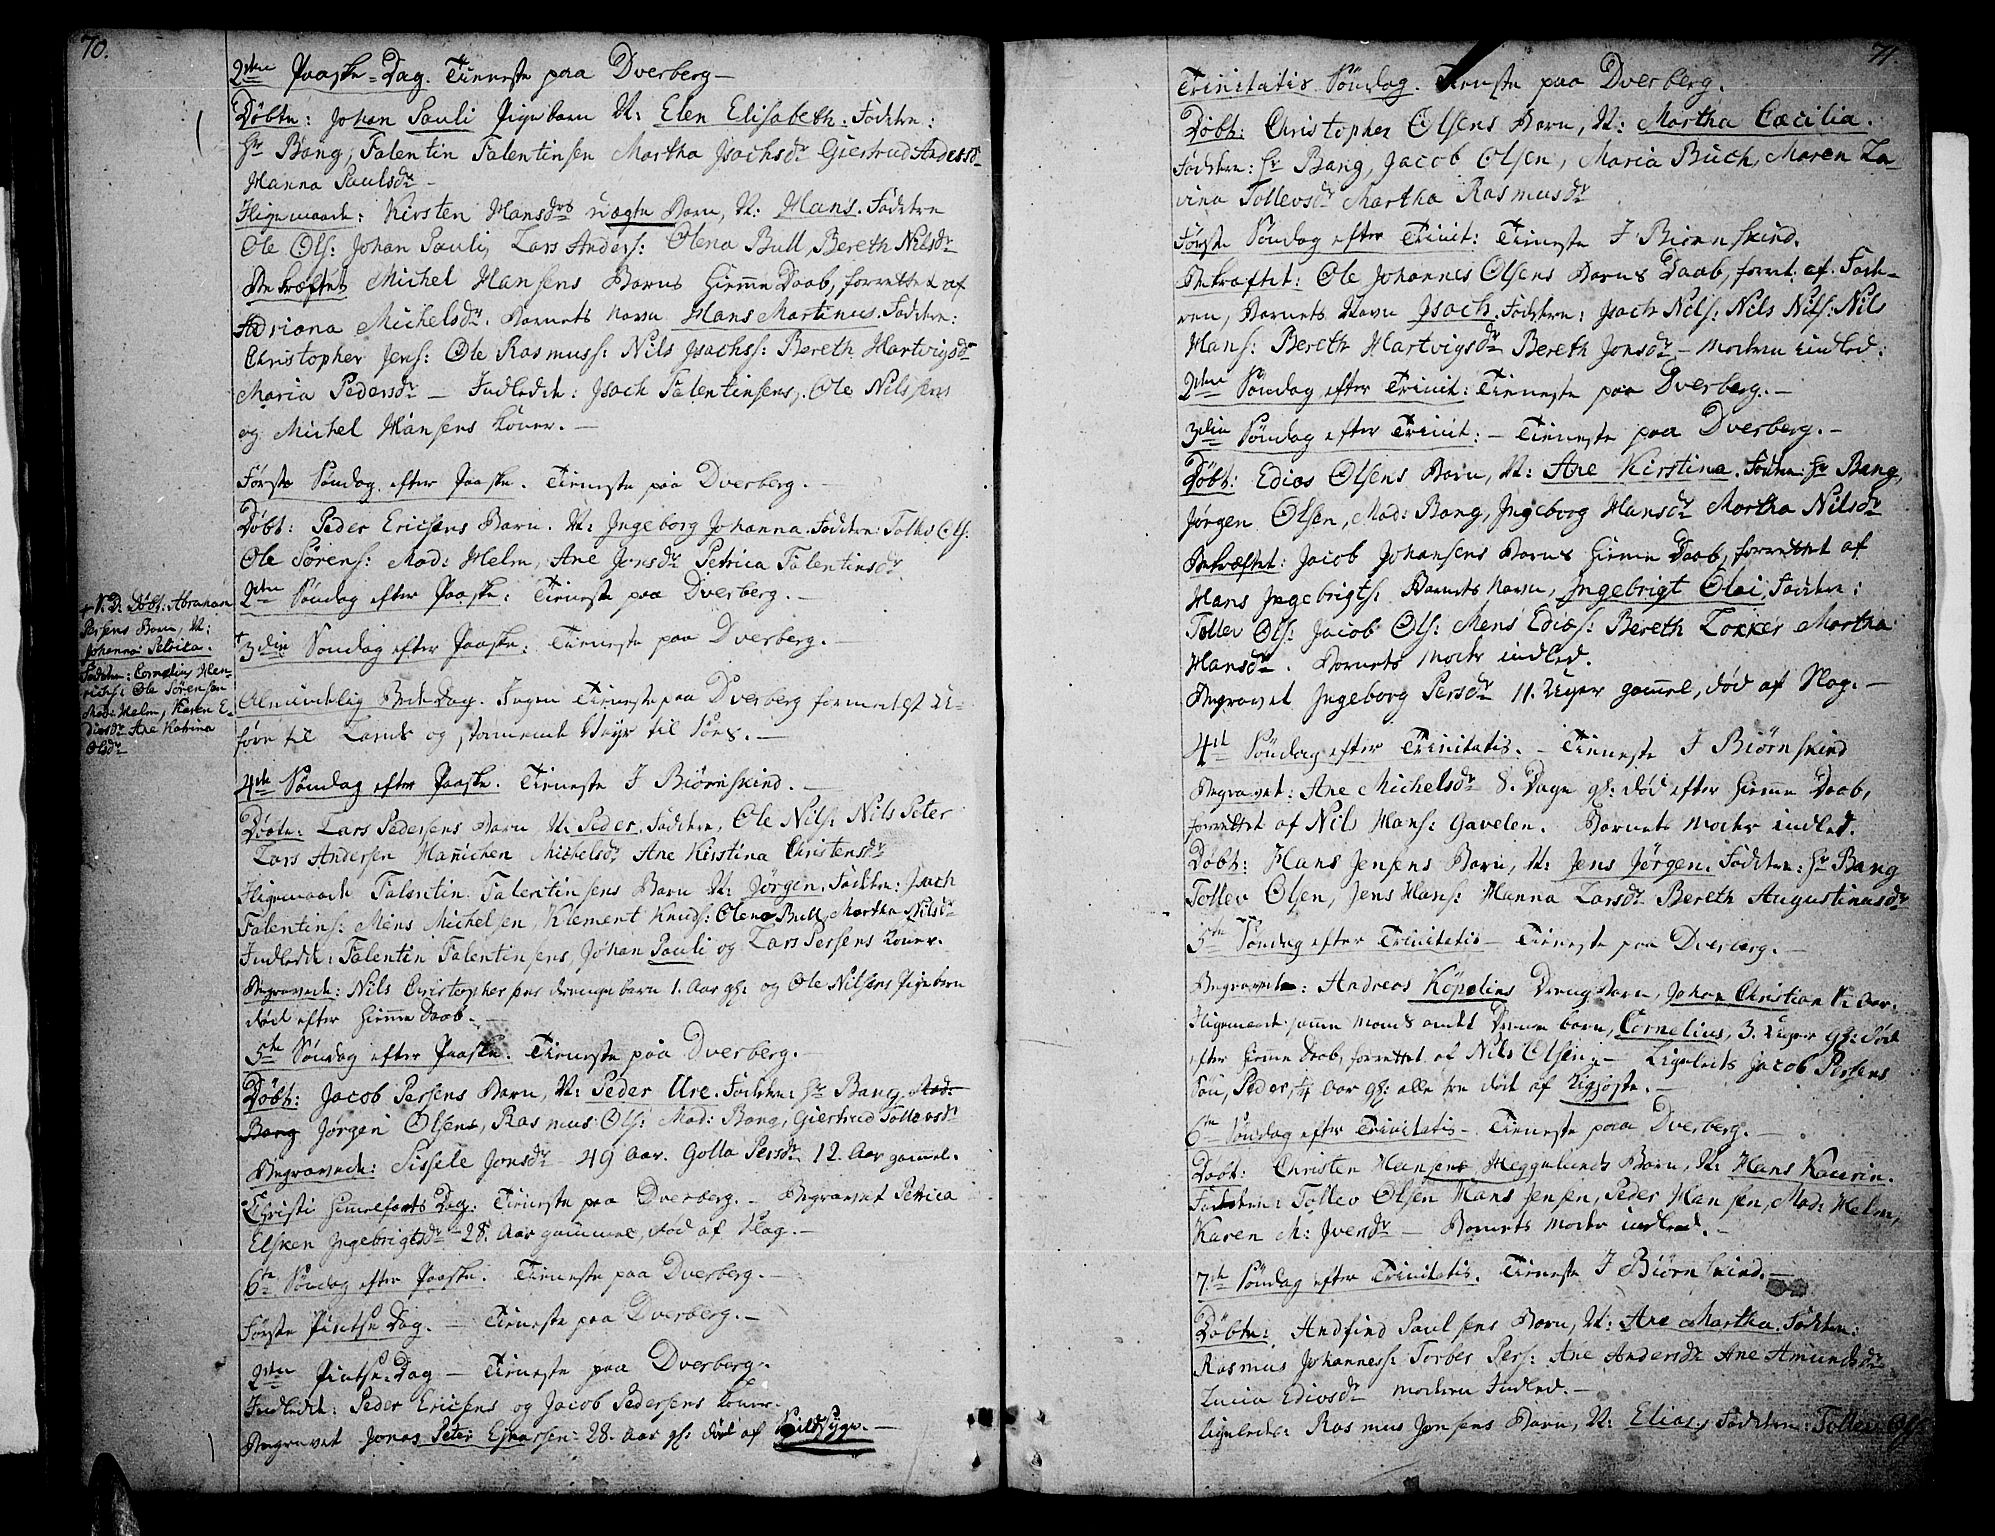 70.
2den Paaske-Dag. Tieneste paa Dverberg –
Döbte: Johan Pauli Pigebarn N: Elen Elisabeth. Faddere:
Hr Bang, Falentin Falentinsen Martha Jsachsdr Giertrud Andersdr
Hanna Paulsdr –
Iligemaade: Kirsten Hansdrs uægte Barn, N: Hans. Faddere
Ole Ols: Johan Pauli, Lars Anders: Olena Bull, Bereth Nilsdr
Bekræftet Michel Hansens Barns hiemme Daab, forrettet af
Adriana Michelsdr. Barnets navn Hans Martinus. Faddere:
Christopher Jens: Ole Rasmuss: Nils Jsachss: Bereth Hartvigsdr
Maria Pedersdr – Indledde: Jsach Falentinsens, Ole Nilssens
og Michel Hansens koner. –
Förste Söndag efter Paaske. Tieneste paa Dverberg. –
Döbt: Peder Ericsens Barn. N: Jngeborg Johanna. Faddere: Ols:
Ole Sörens: Mad: Helm, Ane Jonsdr Petrica Falentinsdr
2den Söndag efter Paaske: Tieneste paa Dverberg. –
+ 3die Söndag efter Paaske: Tieneste paa Dverberg. –
+ N.B. Döbt: Abraham
Persens Barn, N:
Johanna Petrica.
Faddere: Cornelius Hen-
richs: Ole Sörensen
Mad: Helm, Karen E-
diasdr Ane Katrina
Olsdr
Almindelig Bede Dag. Ingen Tieneste paa Dverberg formedelst U-
före til Lands og stormende Veyr til Söes. –
4de Söndag efter Paaske. Tieneste I Biörnskind. –
Döbte: Lars Pedersens Barn N: Peder. Faddere, Ole Nils: Nils Peter
Lars Andersen Hanichen Michelsdr Ane Kirstina Christensdr
Iligemaade Falentin Falentinsens Barn N: Jörgen. Faddere: Jsach
Falentins: Mens Michelsen, Klement Knuds: Olena Bull, Martha Nilsdr
Indledde: Falentin Falentinsens, Johan Pauli og Lars Persens koner.
Begravede: Nils Christophersens drengebarn 1. Aar gl: og Ole Nilsens Pigebarn
död efter hiemme Daab. –
5te Söndag efter Paaske. Tieneste paa Dverberg. –
Döbt: Jacob Persens Barn, N: Peder Ure. Faddere: Hr Bang, Mad:
Bang Jörgen Olsens, Rasmus Ols: Mad: Bang, Giertrud Tollevsdr
Begravede: Sissele Jonsdr 49 Aar. Golla Persdr 12. Aar gammel.
Christi Himmelfarts Dag: Tieneste paa Dverberg. – Begravet Petrica
Elsken Jngebrigtsdr 28. Aar gammel, död af Hog. –
6te Söndag efter Paaske. Tieneste paa Dverberg. –
Förste Pintse Dag. – Tieneste paa Dverberg. –
2den Pintse-Dag – Tieneste paa Dverberg. –
Indledde: Peder Ericsens og Jacob Pedersens koner. –
Begravet Jonas Peter Ejnarsen: 28. Aar gl: död af –
71.
Trinitatis Söndag. Tieneste paa Dverberg.
Döbt: Christopher Olsens Barn, N: Martha Cæcilia.
Faddere: Hr Bang, Jacob Olsen, Maria Buch, Maren La-
vina Tollevsdr Martha Rasmusdr
Förste Söndag efter Trinit: Tieneste I Biörnskind.
Bekræftet: Ole Johannes Olsens Barns Daab, forret: af Fade-
ren, Barnets Navn Jsach. Faddere: Jsach Nils: Nils Nils: Nils
Hans: Bereth Hartvigsdr Bereth Jonsdr – Moderen indled:
2den Söndag efter Trinit: Tieneste paa Dverberg. –
3die Söndag efter Trinit: – Tieneste paa Dverberg. –
Döbt: Edias Olsens Barn, N: Ane Kirstina. Faddere: Hr Bang,
Jörgen Olsen, Mad: Bang, Jngeborg Hansdr Martha Nilsdr
Bekræftet: Jacob Johansens Barns hiemme Daab, forrettet af
Hans Jngebrigts: Barnets navn, Jngebrigt Olai, Faddere:
Tollev Ols: Jacob Ols: Mens Edias: Bereth Lokkes Martha
Hansdr. Barnets Moder indled.
Begravet Jngeborg Persdr 11. Uger gammel, död af Hog. –
4de Söndag efter Trinitatis. – Tieneste I Biörnskind
Begravet: Ane Michelsdr 8. Dage gl: död efter hiemme Daab,
forrettet af Nils Hans: Gavelen. Barnets Moder indled.
Döbt: Hans Jensens Barn, N: Jens Jörgen. Faddere: Hr Bang
Tollev Olsen, Jens Hans: Hanna Larsdr Bereth Augustinusdr
5te Söndag efter Trinitatis – Tieneste paa Dverberg. –
Begravede: Andreas Köpolins Drenge Barn, Johan Christian Aar.
Iligemaade samme Mands andet Drenge barn, Cornelius, 3. Uger gl: död
efter hiemme Daab, forrettet af Nils Olsen. – Ligeledes Jacob Persens
Sön, Peder, 1/4 Aar gl: alle tre död af Kigjoste. –
6te Söndag efter Trinitatis – Tieneste paa Dverberg. –
Döbt: Christen Hansens Heggelunds Barn, N: Hans Kaurin.
Faddere: Tollev Olsen Hans Jensen, Peder Hansen, Mad: Helm,
Karen M: Jversdr – Barnets Moder indled. –
7de Söndag efter Trinitatis. Tieneste I Biörnskind. –
Döbte: Andfind Paulsens Barn, N: Ane Martha. Faddere:
Rasmus Johanness: Torber Pers: Ane Andersdr Ane Amundsdr
Lucia Ediasdr Moderen Indled. –
Ligeledes: Rasmus Jensens Barn, N: Elias, Faddere: Tollev Ols